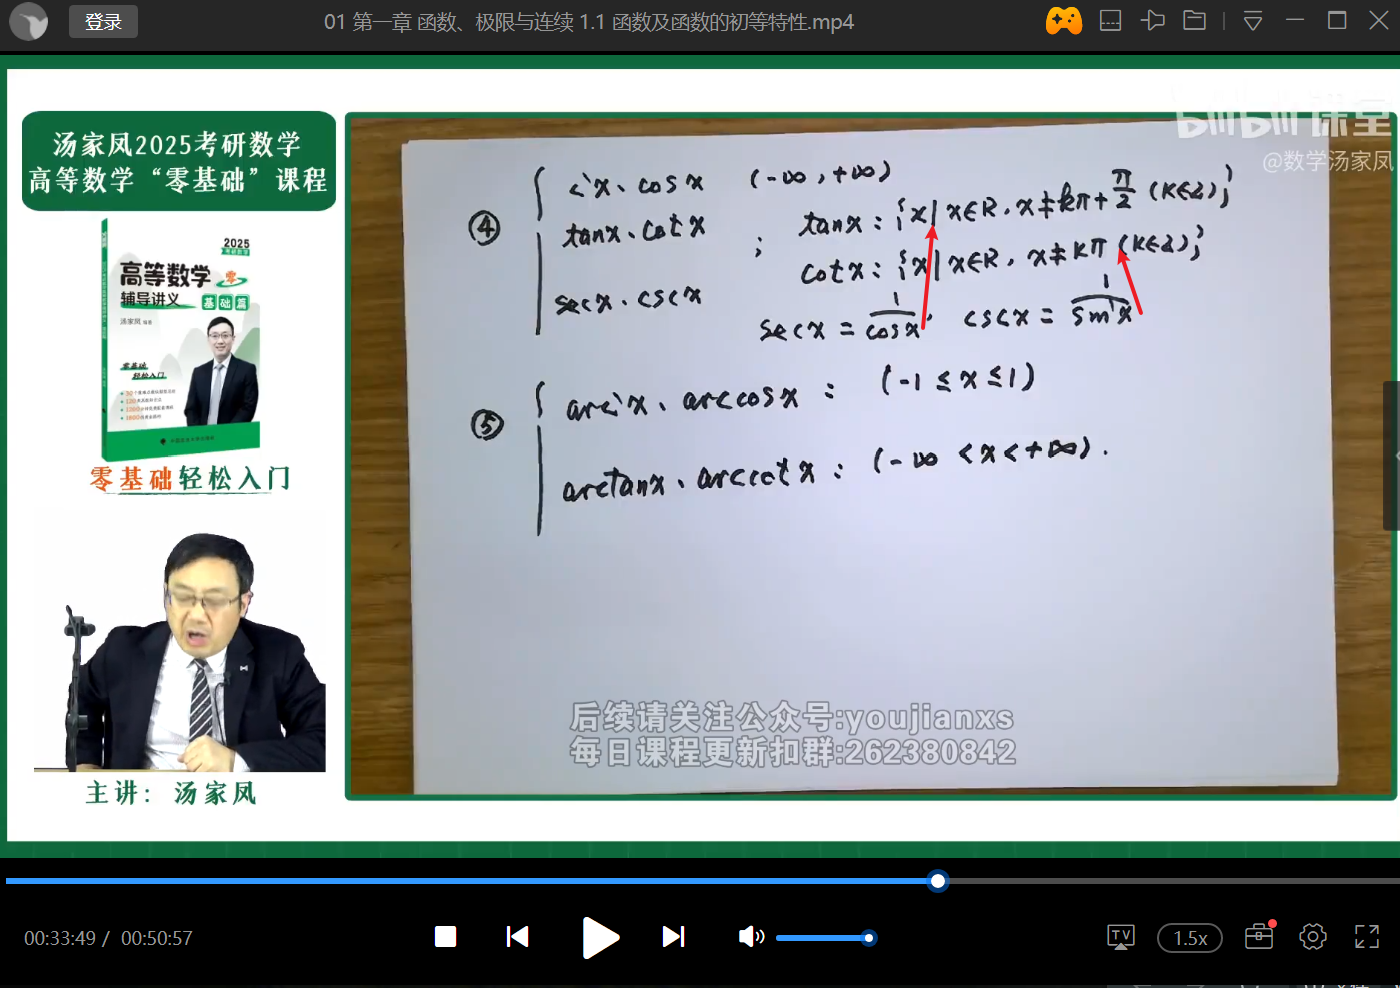 登录
01 第一章 函数、极限与连续 1.1 函数及函数的初等特性.mp4
汤家凤2025考研数学
高等数学“零基础”课程
2025
高等数学 零
辅导讲义 基础篇
汤家凤
零基础
轻松入门
零基础轻松入门
主讲：汤家凤
bilibili课堂
@数学汤家凤
④
cosx (-∞,+∞)
tanx、cotx ; tanx:{x|x∈R,x≠kπ+π/2 (k∈Z)};
cotx:{x|x∈R,x≠kπ (k∈Z)};
secx、cscx
secx=1/cosx, cscx=1/sinx
⑤
arccosx: (-1≤x≤1)
arctanx、arccotx: (-∞<x<+∞).
后续请关注公众号:youjianxs
每日课程更新扣群:262380842
00:33:49 / 00:50:57
TV
1.5x